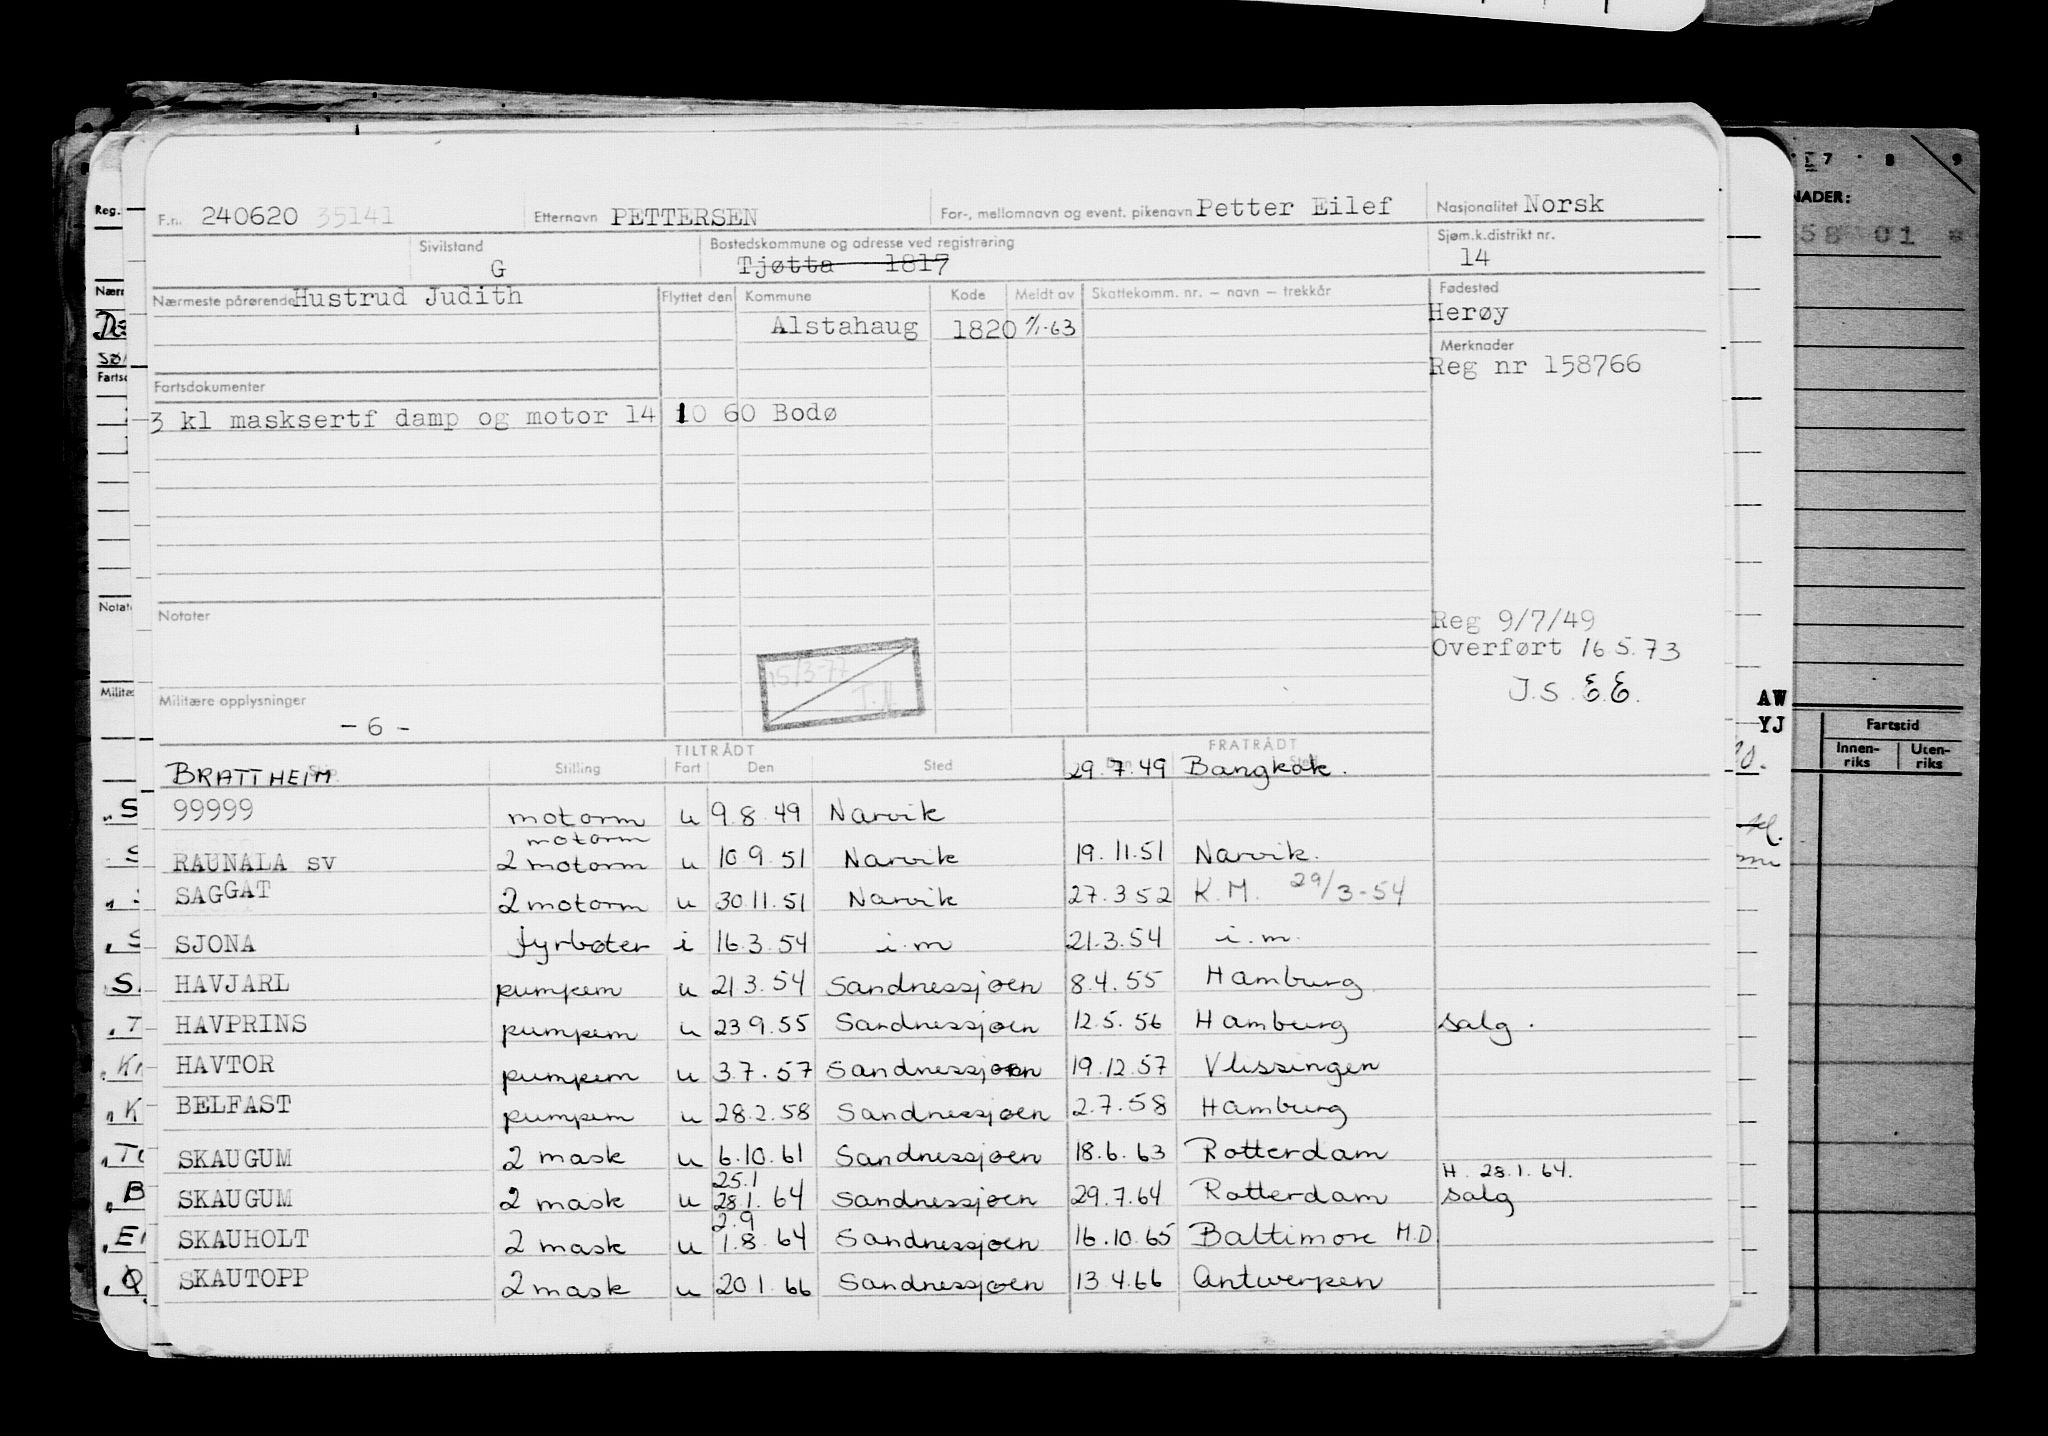 F.nr. 240620 35141 Etternavn PETTERSEN For-, mellomnavn og event. pikenavn Petter Eilef Nasjonalitet Norsk
Sivilstand G Bostedskommune og adresse ved registrering Tjøtta 1817 Sjøm.k.distrikt nr. 14
Nærmeste pårørende Hustrud Judith Flyttet den Kommune Kode Meldt av Skattekomm. nr. – navn – trekkår Fødested
Alstahaug 1820 1/1-63 Herøy
Merknader
Reg nr 158766
Fartsdokumenter
3 kl masksertf damp og motor 14 10 60 Bodø
Notater
Reg 9/7/49
Overført 16 5.73
J.S. E.E.
15/3-77
Militære opplysninger
- 6 -
TILTRÅDT FRATRÅDT
Stilling Fart Den Sted
BRATTHEIM 29.7.49 Bangkok.
99999 motorm u 9.8.49 Narvik
motorm
RAUNALA sv 2 motorm u 10 9.51 Narvik 19.11.51 Narvik.
SAGGAT 2 motorm u 30.11.51 Narvik 27.3 52 K.M. 29/3-54
SJONA fyrbøter i 16.3.54 i.m 21.3.54 i.m.
HAVJARL pumpem u 21 3.54 Sandnessjøen 8.4.55 Hamburg
HAVPRINS pumpem u 23 9.55 Sandnessjøen 12.5.56 Hamburg salg.
HAVTOR pumpem u 3.7.57 Sandnessjøen 19.12.57 Vlissingen
BELFAST pumpem u 28.2.58 Sandnessjøen 2.7.58 Hamburg
SKAUGUM 2 mask u 6.10.61 Sandnessjøen 18.6.63 Rotterdam
25.1 H. 28.1.64.
SKAUGUM 2 mask u 28.1.64 Sandnessjøen 29.7.64 Rotterdam salg
2.9
SKAUHOLT 2 mask u 1.8.64 Sandnessjøen 16.10.65 Baltimore M.D
SKAUTOPP 2 mask u 20.1.66 Sandnessjøen 13.4.66 Antwerpen
Reg.
Fartsd
Notat
7 8 9
NADER:
58 01
AW
YJ
Fartstid
Innen-
riks
Uten-
riks